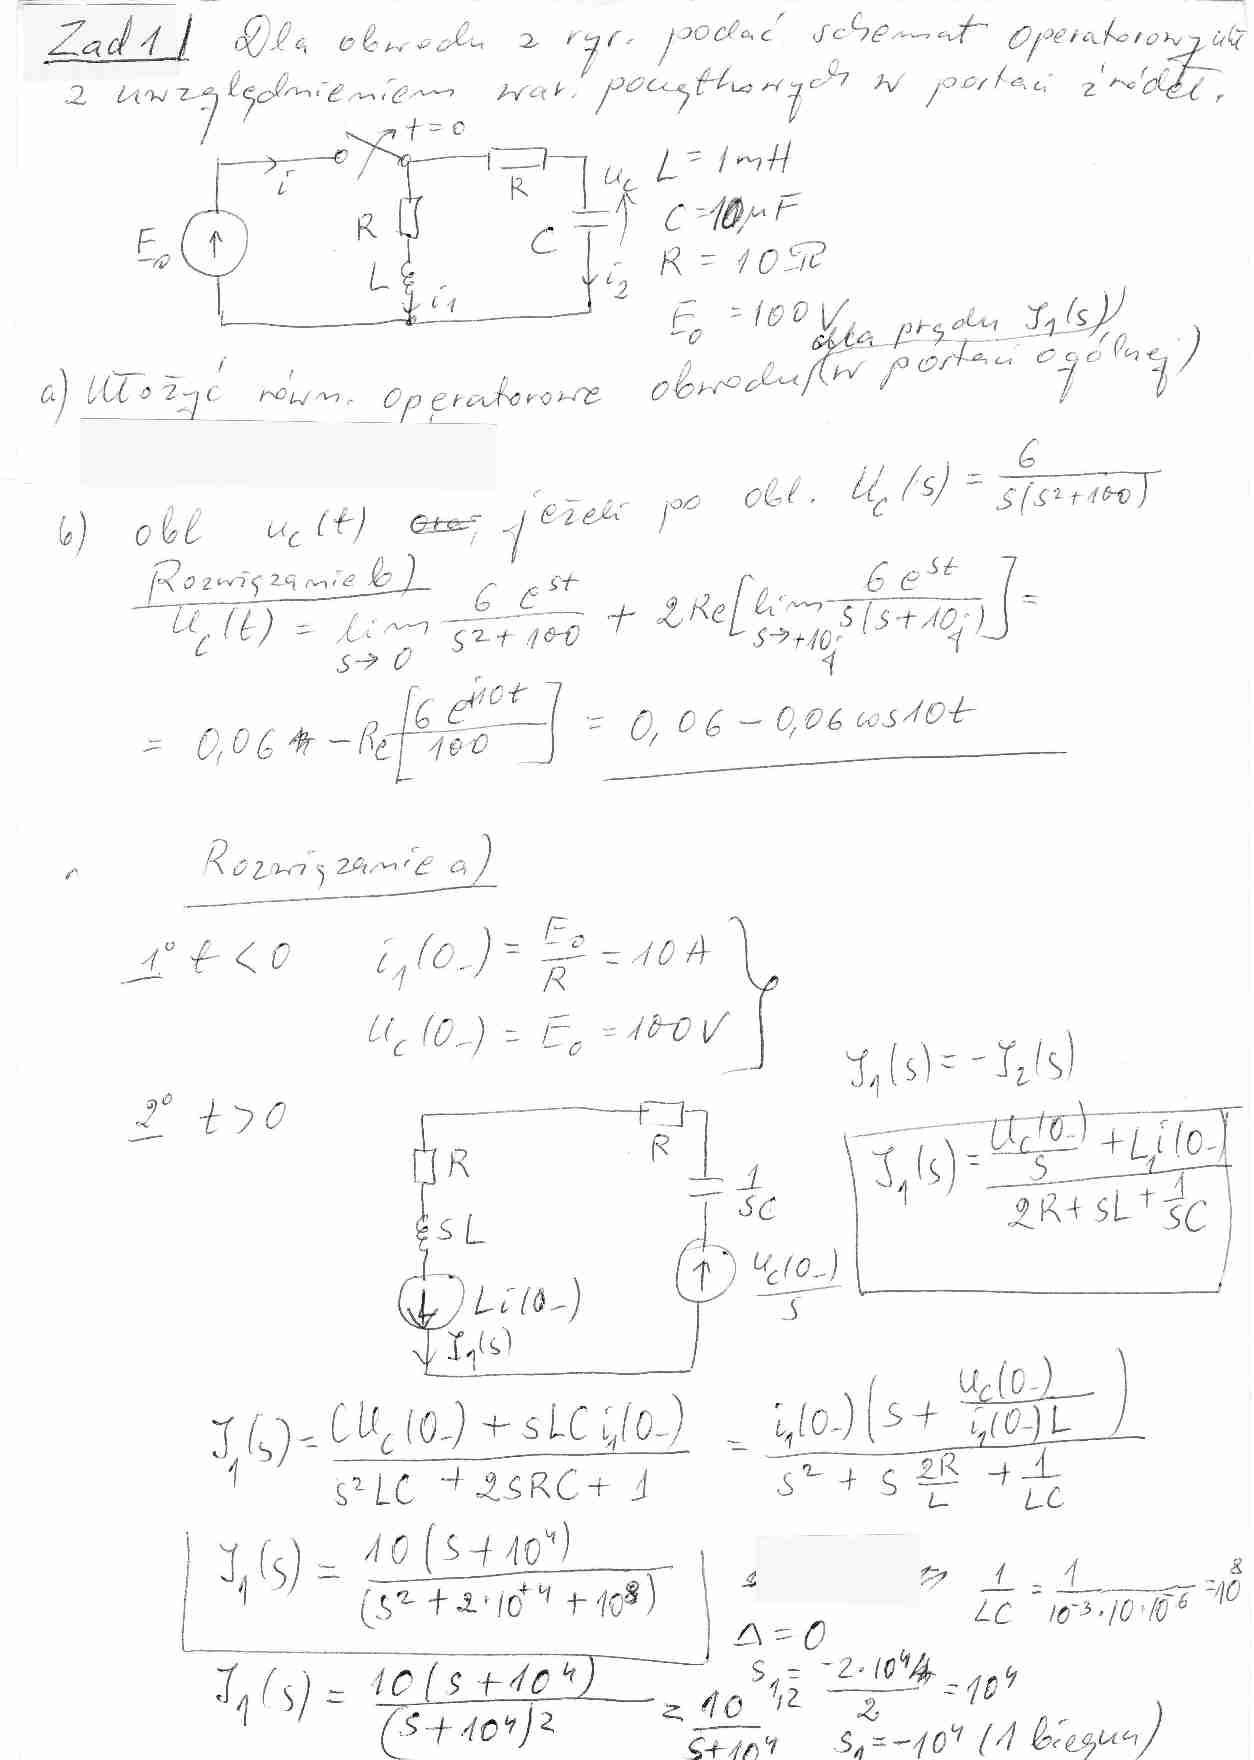 Zad 1 Dla obwodu z rys. podać schemat operatorowy
z uwzględnieniem war. początkowych w postaci źródeł.
t=0
i
R
u_c
L = 1mH
C = 10μF
R
E_0
C
L
i_1
i_2
R = 10Ω
E_0 = 100V
dla prądu I_1(s)
a) Ułożyć równ. operatorowe obwodu (w postaci ogólnej)
b) obl u_c(t) jeżeli po obl. U_c(s) = 6 / s(s²+100)
Rozwiązanie b)
u_c(t) = lim s→0 6 e^st / s²+100 + 2Re[lim s→+10j 6 e^st / s(s+10j)] =
= 0,06 - Re[6 e^j10t / 100] = 0,06 - 0,06 cos10t
Rozwiązanie a)
1° t < 0 i_1(0_-) = E_0 / R = 10A
u_c(0_-) = E_0 = 100V
I_1(s) = - I_2(s)
2° t > 0
R
R
1/sC
sL
Li(0_-)
u_c(0_-) / s
I_1(s)
I_1(s) = (u_c(0_-)/s + Li_1(0_-)) / (2R + sL + 1/sC)
I_1(s) = (CU_c(0_-) + sLC i_1(0_-)) / (s²LC + 2sRC + 1) = i_1(0_-)(s + u_c(0_-) / i_1(0_-)L) / (s² + s 2R/L + 1/LC)
I_1(s) = 10(s+10⁴) / (s² + 2·10⁺⁴ + 10⁸)
⇒ 1/LC = 1 / 10⁻³·10·10⁻⁶ = 10⁸
Δ = 0
s_1,2 = -2·10⁴ / 2 = 10⁴
I_1(s) = 10(s+10⁴) / (s+10⁴)² = 10 / s+10⁴
s_1 = -10⁴ (1 biegun)